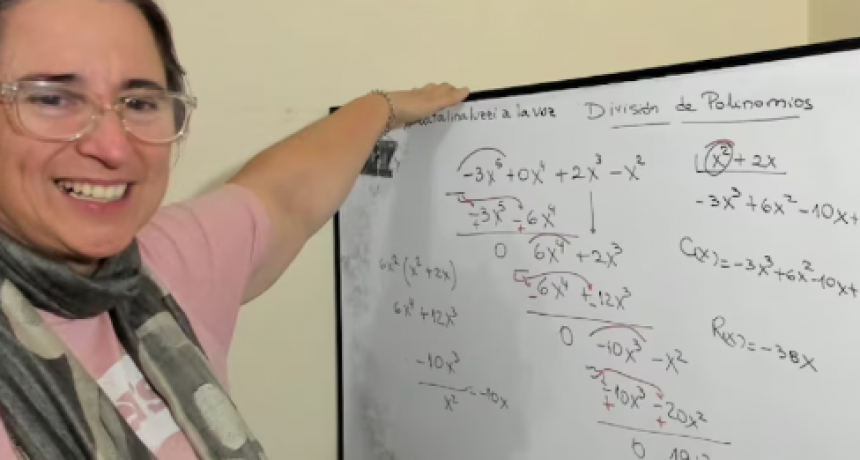 a la voz División de Polinomios
-3x⁵+0x⁴+2x³-x² x²+2x
-3x³+6x²-10x+
-3x⁵-6x⁴
0 6x⁴+2x³
C(x)=-3x³+6x²-10x+
6x²(x²+2x)
-6x⁴+-12x³
6x⁴+12x³
0 -10x³-x²
R(x)=-38x
-10x³
x² =-10x
-10x³-20x²
0